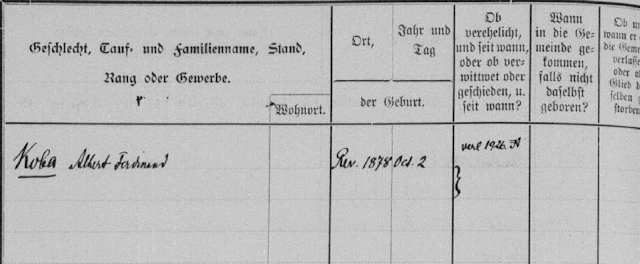 Geschlecht, Tauf- und Familienname, Stand,
Rang oder Gewerbe.
Wohnort.
Ort,
Jahr und
Tag
der Geburt.
Ob
verehelicht,
und seit wann,
oder ob ver-
wittwet oder
geschieden, u.
seit wann?
Wann
in die Ge-
meinde ge-
kommen,
falls nicht
daselbst
geboren?
Ob
wann er
die Geme
verlasse
oder al
Glied d
selben g
storben
Koba Albert Ferdinand
Rev. 1878 Oct. 2
verl 1926.